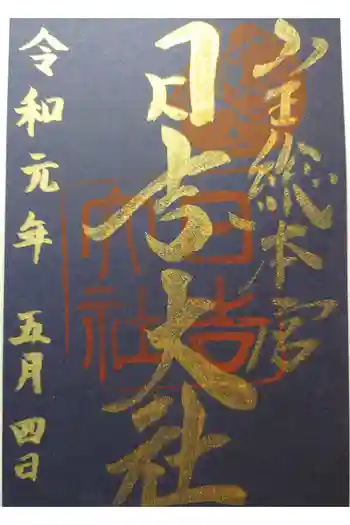 山王総本宮
日吉大社
令和元年 五月四日
日吉大社